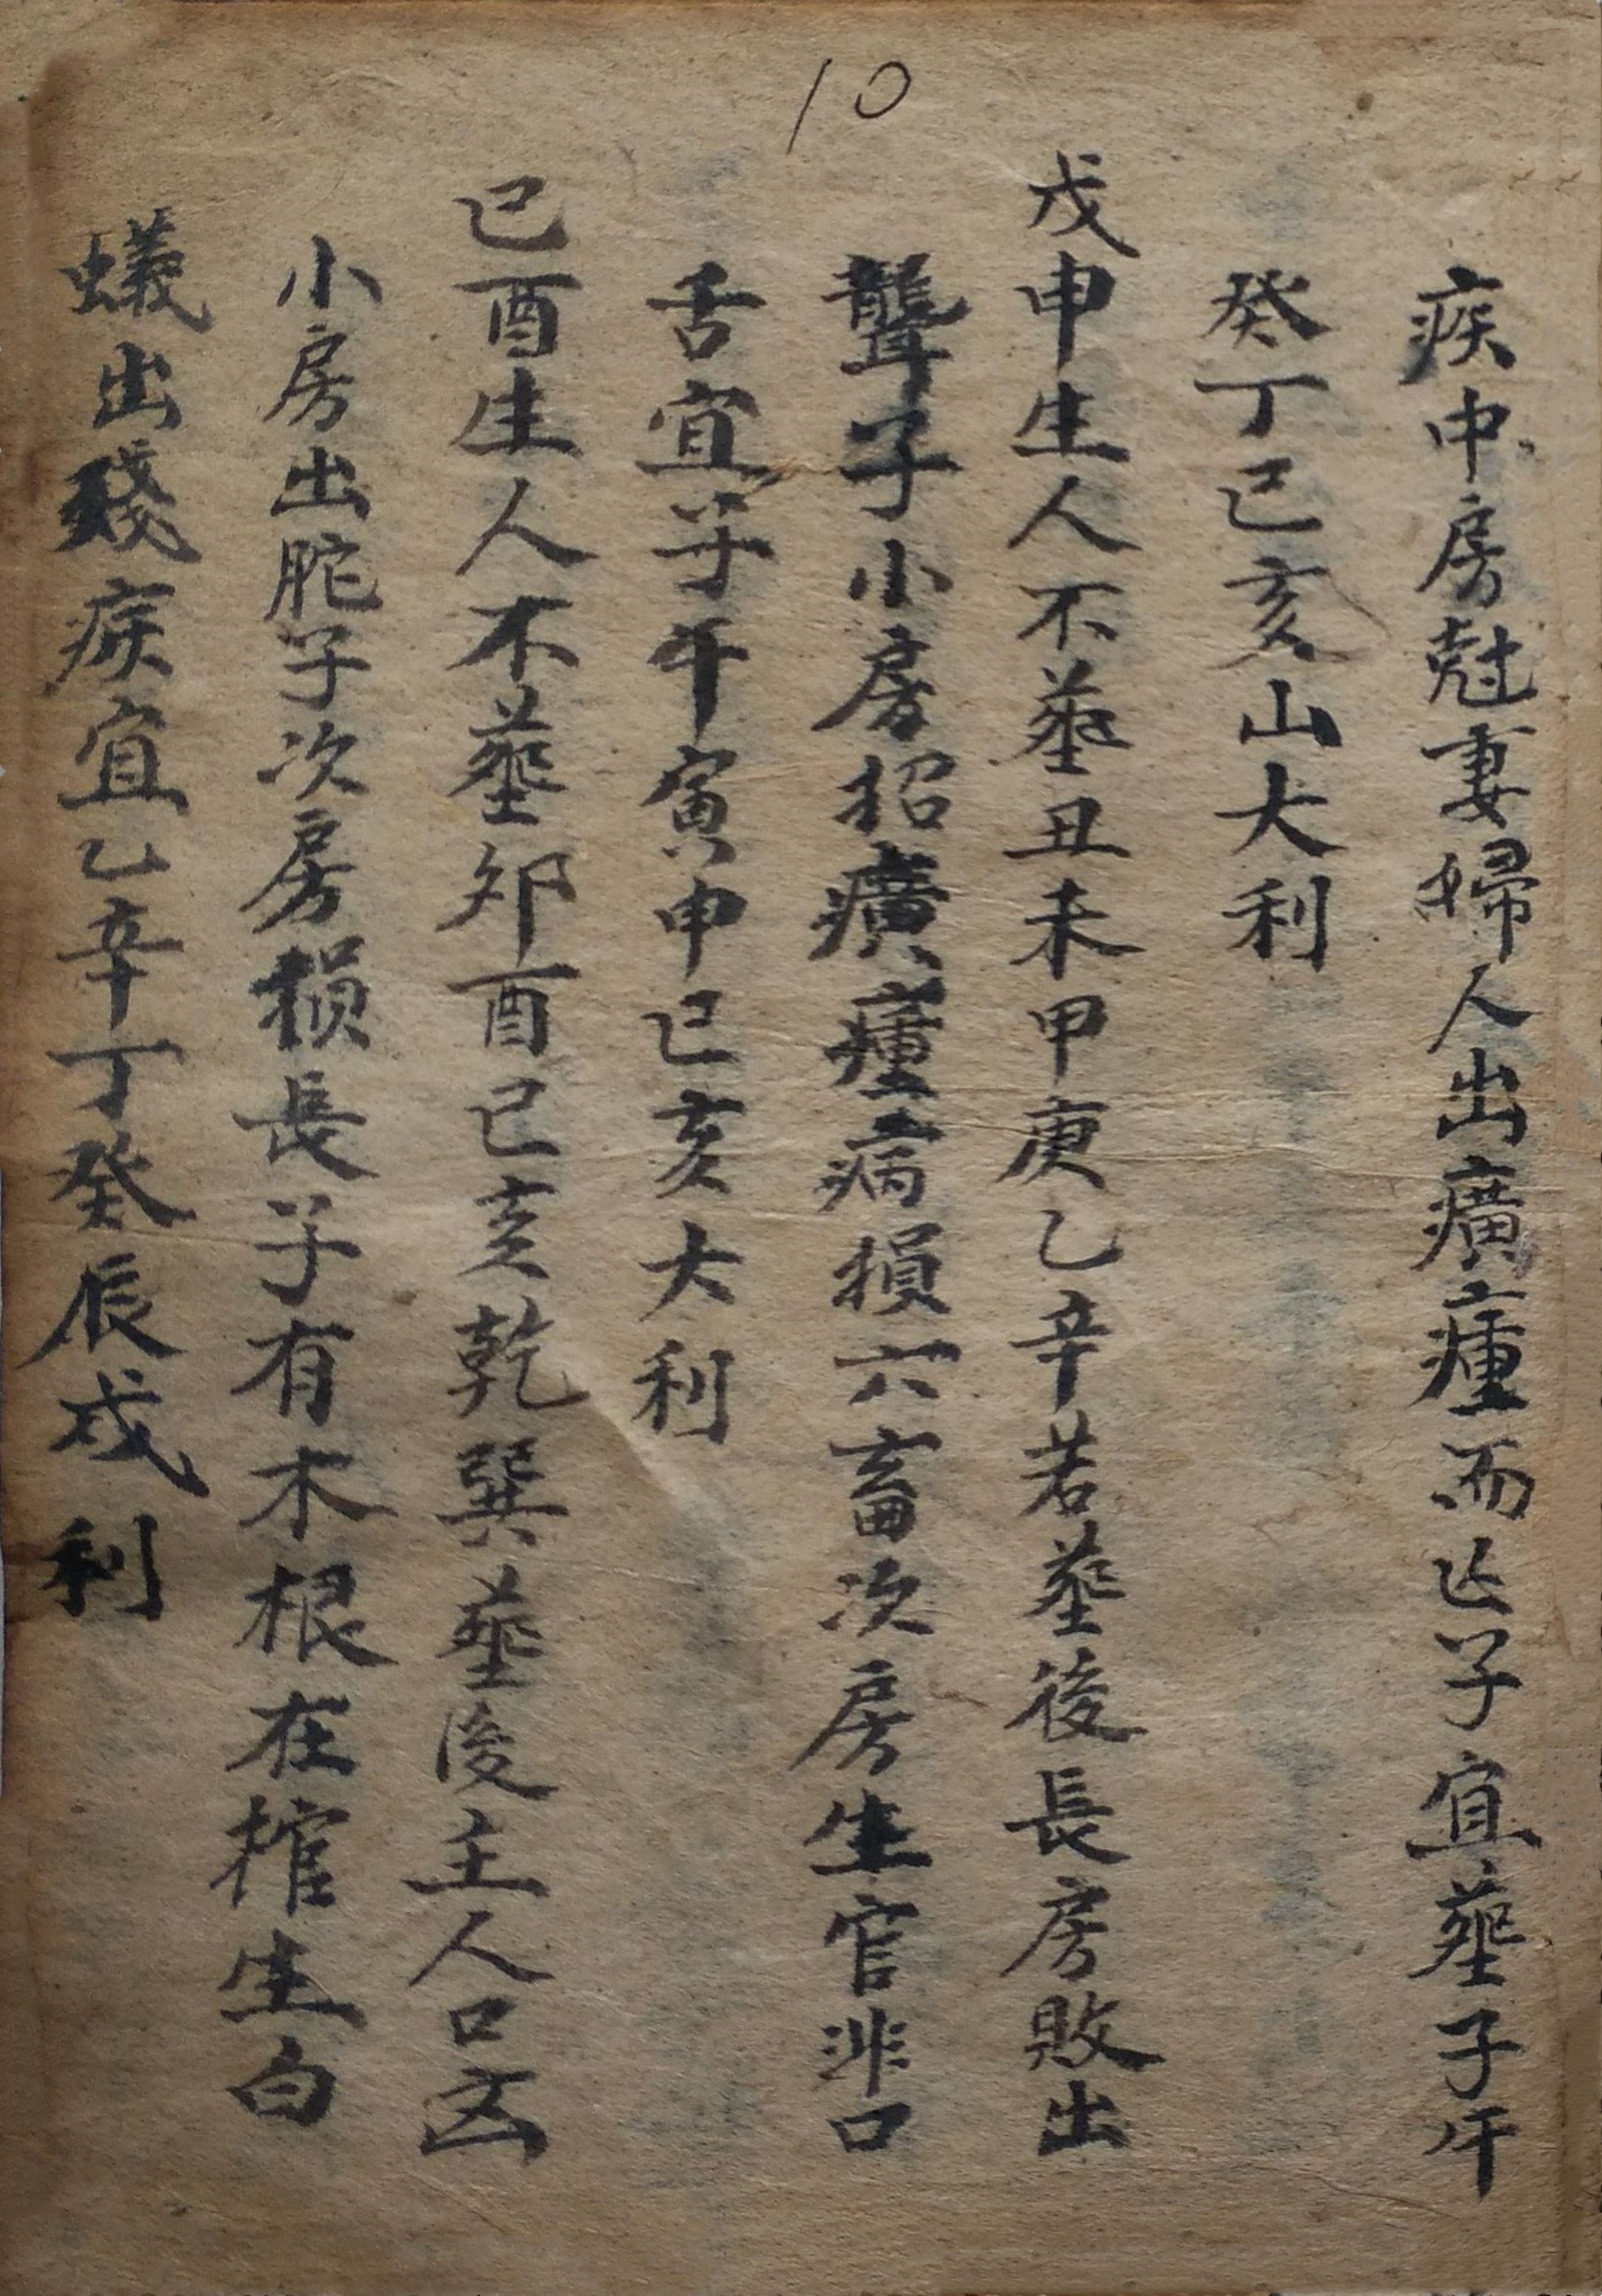 10
疾中房尅妻婦人出癀瘇而亡子宜塟子午
癸丁巳亥山大利
戊申生人不塟丑未甲庚乙辛若塟後長房敗出
聾子小房招癀瘇病損六畜次房生官非口
舌宜子午寅申巳亥大利
己酉生人不塟夘酉巳亥乾巽塟後主人口凶
小房出駝子次房損長子有木根在棺生白
蟻出殘疾宜乙辛丁癸辰戌利